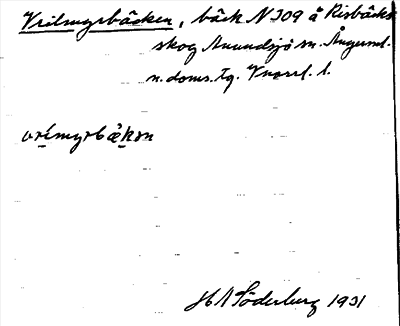 Vrilmyrbäcken, bäck N 309 å Risbäcks
skog Anundsjö sn. Ångerml.
n. doms. tg. Vnorrl. l.
vrimyrbäkǝn
H A Söderberg 1931